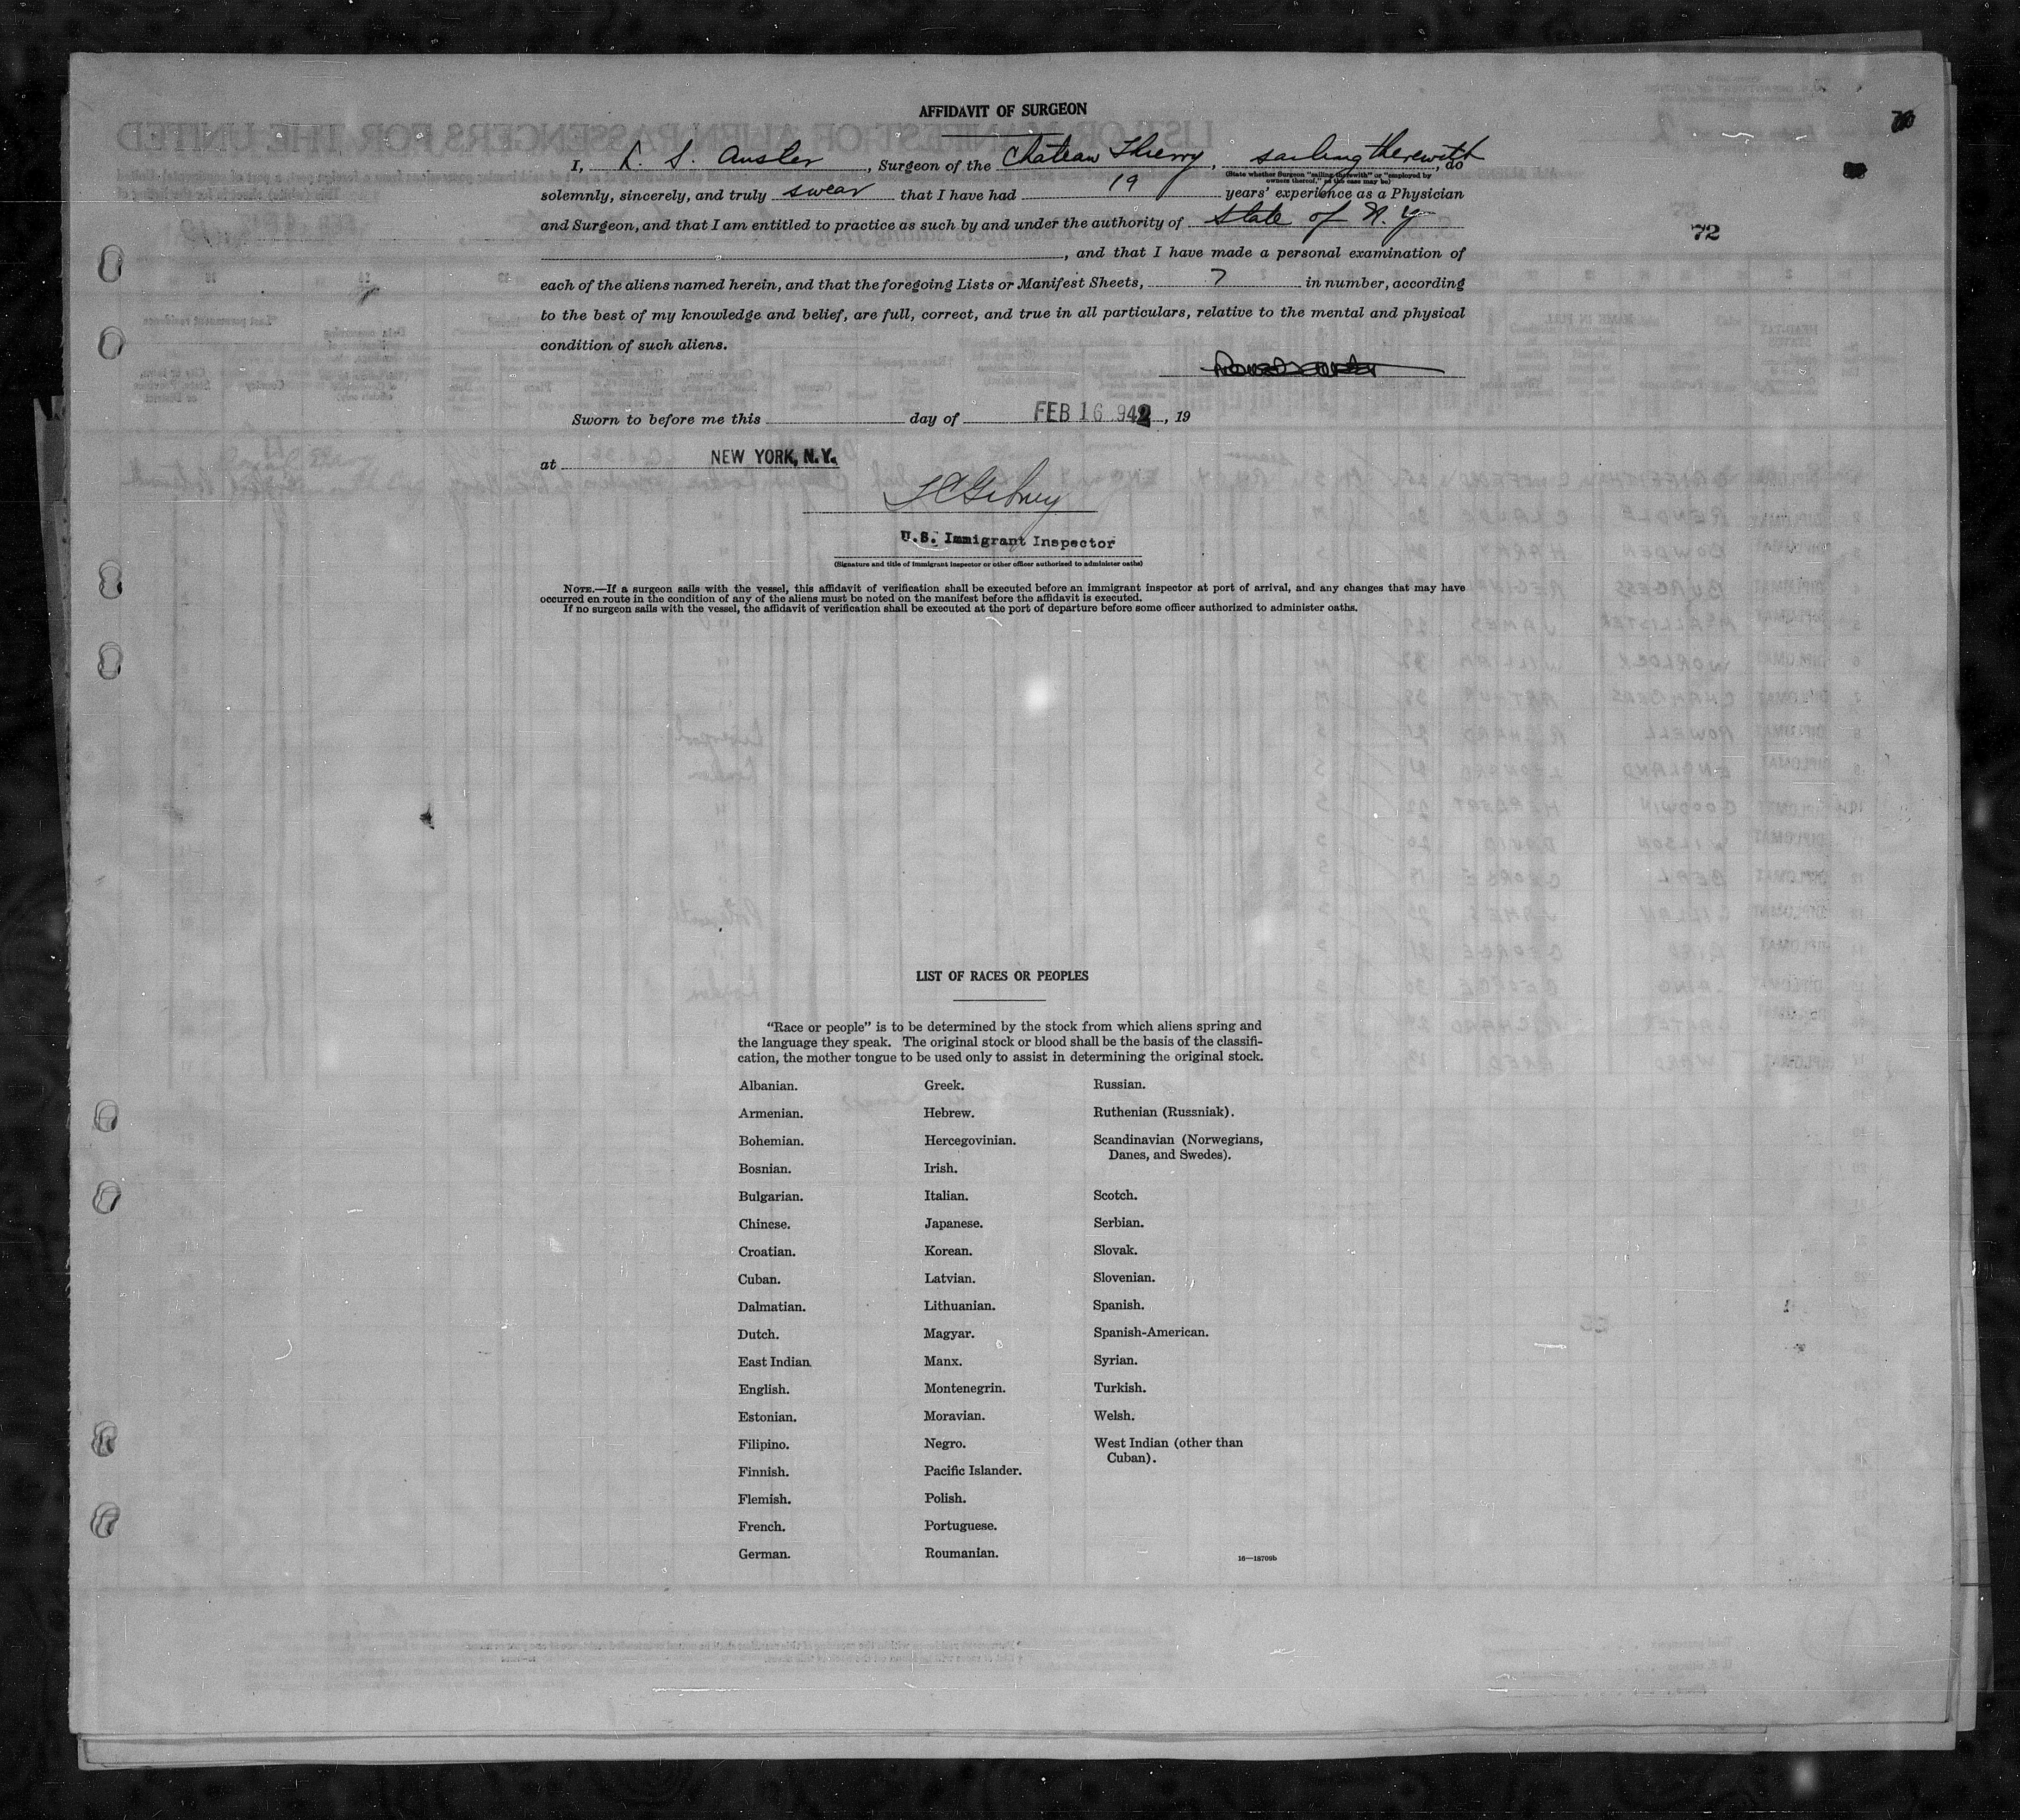 AFFIDAVIT OF SURGEON
I, L. S. Ausler, Surgeon of the Chateau Thierry, sailing therewith, do
(State whether Surgeon "sailing therewith" or "employed by
owners thereof," as the case may be)
solemnly, sincerely, and truly swear that I have had 19 years' experience as a Physician
and Surgeon, and that I am entitled to practice as such by and under the authority of State of N.Y
72
, and that I have made a personal examination of
each of the aliens named herein, and that the foregoing Lists or Manifest Sheets, 7 in number, according
to the best of my knowledge and belief, are full, correct, and true in all particulars, relative to the mental and physical
condition of such aliens.
Sworn to before me this day of FEB 16 942, 19
at NEW YORK, N.Y.
U.S. Immigrant Inspector
(Signature and title of immigrant inspector or other officer authorized to administer oaths)
NOTE.—If a surgeon sails with the vessel, this affidavit of verification shall be executed before an immigrant inspector at port of arrival, and any changes that may have
occurred en route in the condition of any of the aliens must be noted on the manifest before the affidavit is executed.
If no surgeon sails with the vessel, the affidavit of verification shall be executed at the port of departure before some officer authorized to administer oaths.
LIST OF RACES OR PEOPLES
"Race or people" is to be determined by the stock from which aliens spring and
the language they speak. The original stock or blood shall be the basis of the classifi-
cation, the mother tongue to be used only to assist in determining the original stock.
Albanian.
Armenian.
Bohemian.
Bosnian.
Bulgarian.
Chinese.
Croatian.
Cuban.
Dalmatian.
Dutch.
East Indian
English.
Estonian.
Filipino.
Finnish.
Flemish.
French.
German.
Greek.
Hebrew.
Hercegovinian.
Irish.
Italian.
Japanese.
Korean.
Latvian.
Lithuanian.
Magyar.
Manx.
Montenegrin.
Moravian.
Negro.
Pacific Islander.
Polish.
Portuguese.
Roumanian.
Russian.
Ruthenian (Russniak).
Scandinavian (Norwegians,
Danes, and Swedes).
Scotch.
Serbian.
Slovak.
Slovenian.
Spanish.
Spanish-American.
Syrian.
Turkish.
Welsh.
West Indian (other than
Cuban).
16—18709b